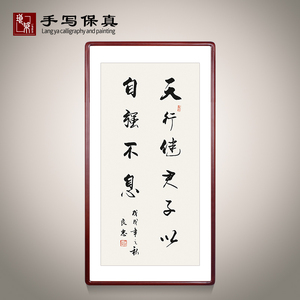 手写保真
Lang ya calligraphy and painting
天行健君子以
自强不息
戊戌年之秋